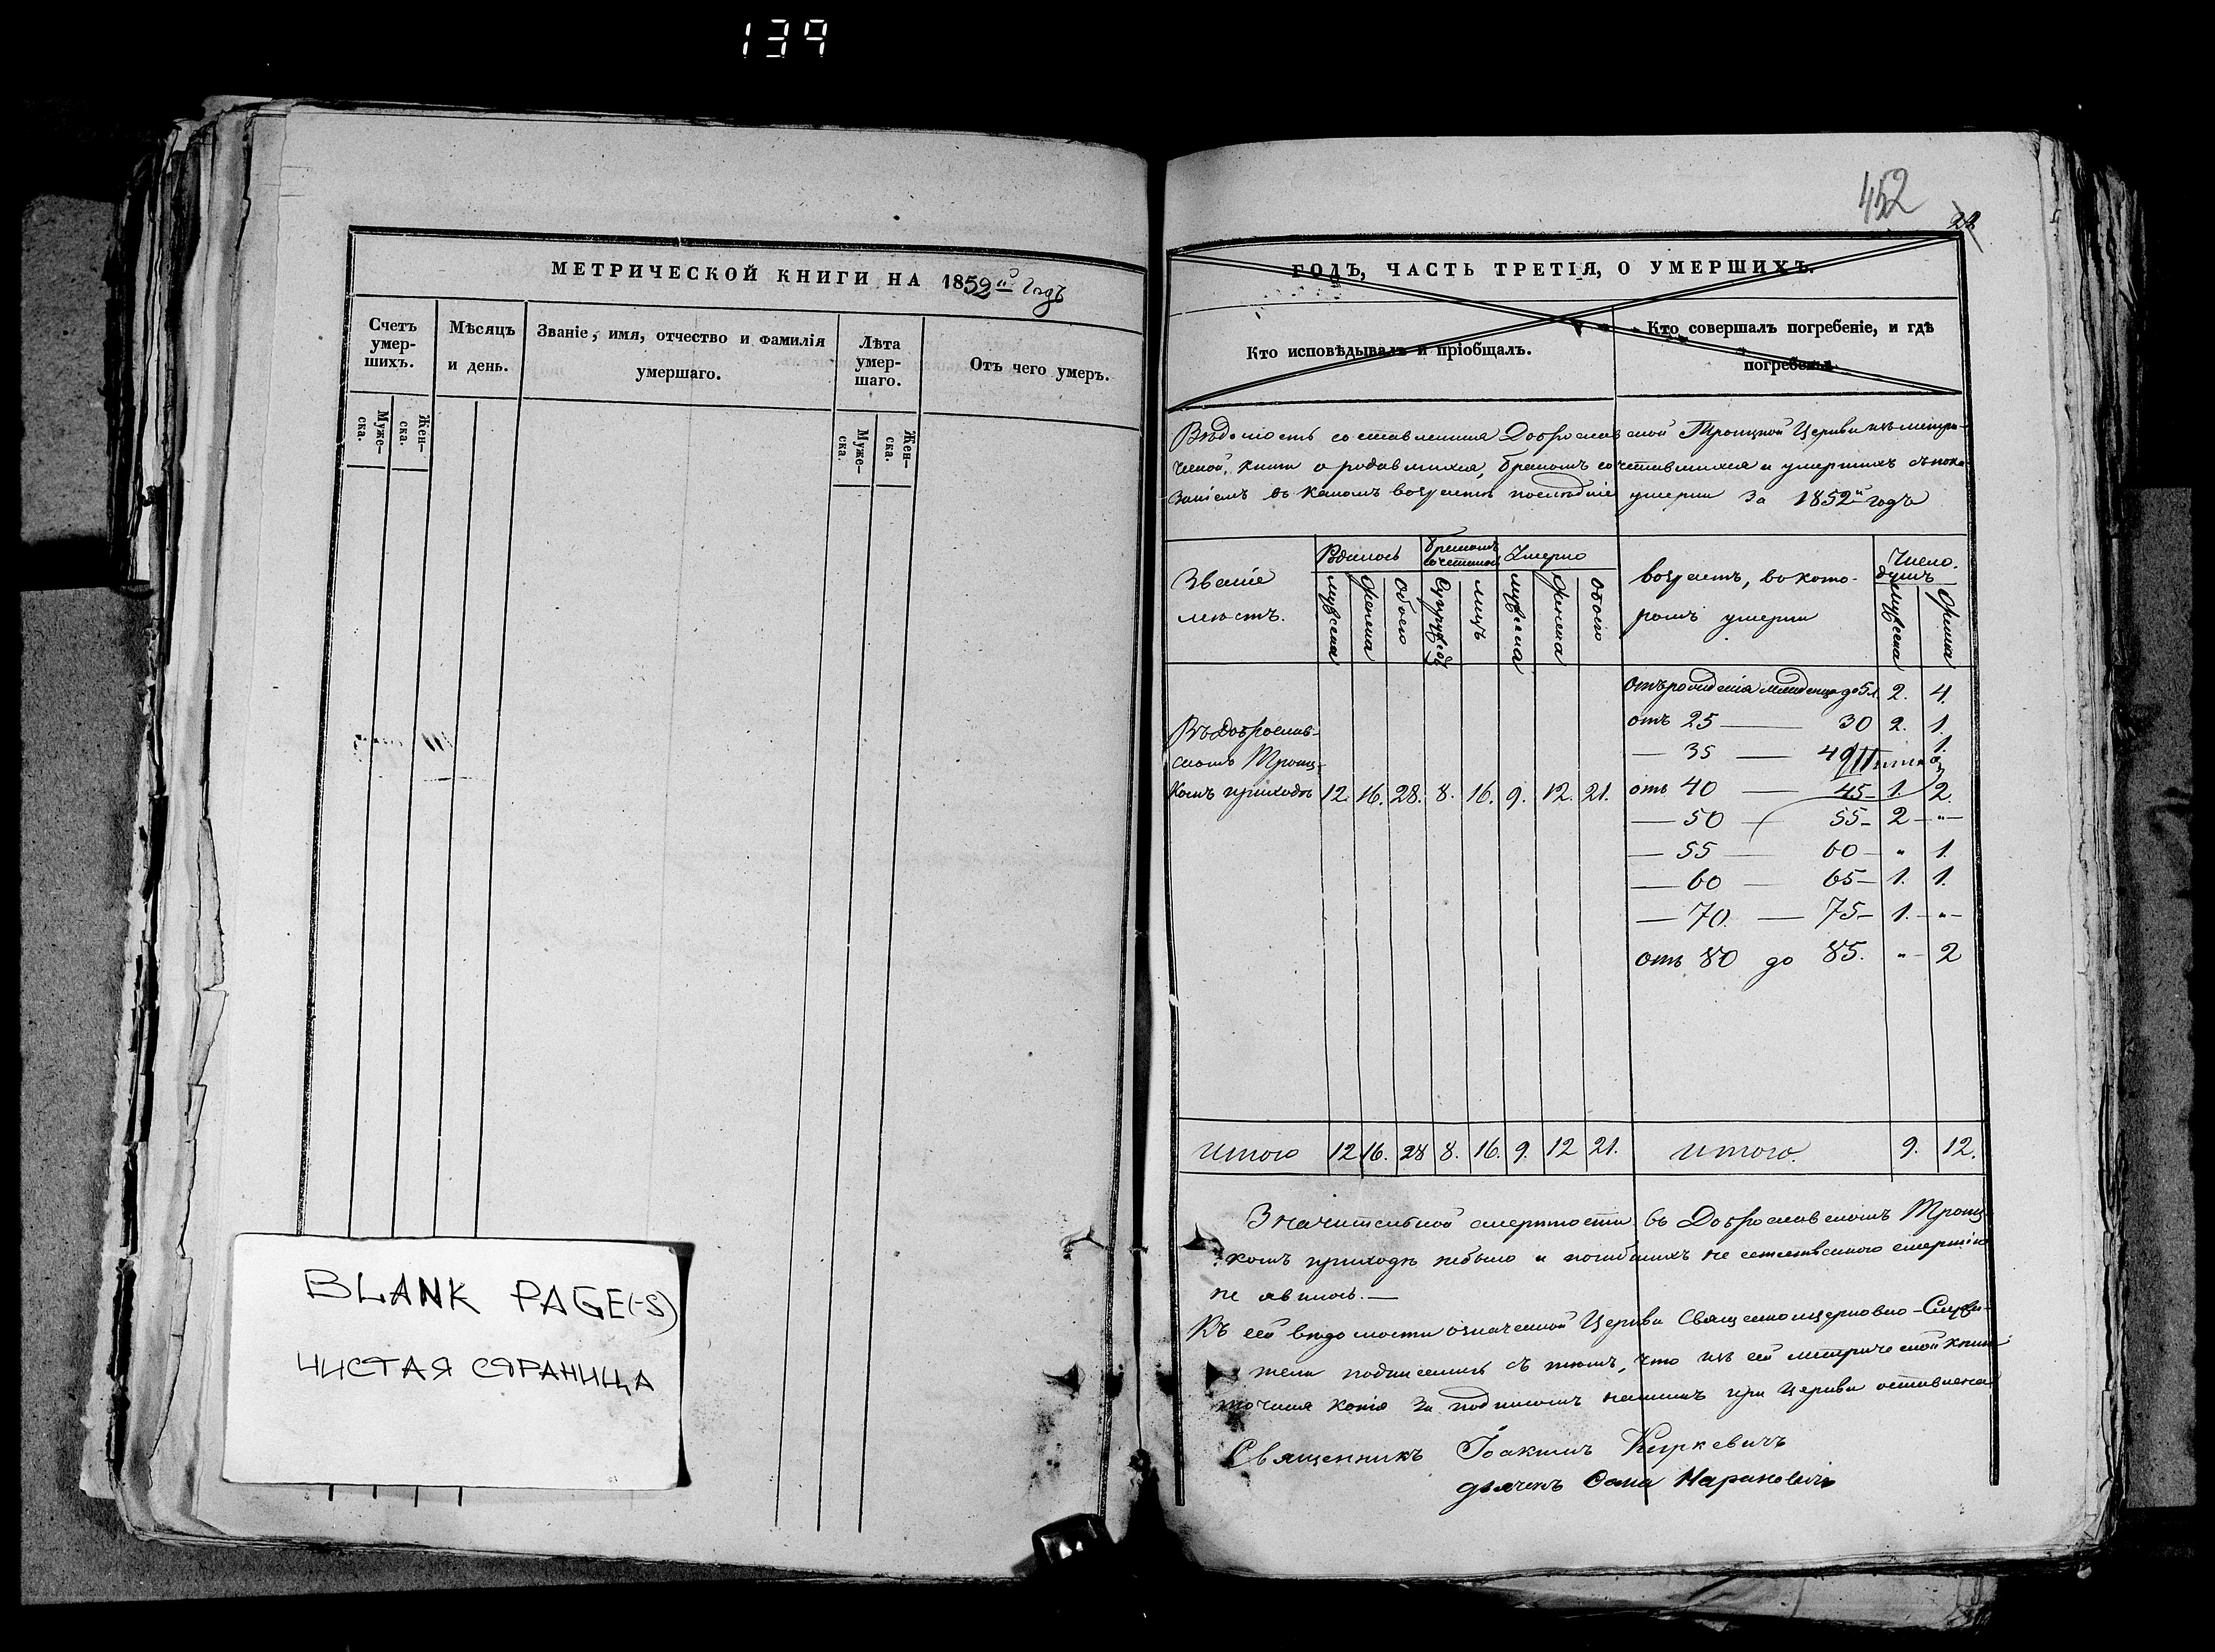 139
МЕТРИЧЕСКОЙ КНИГИ НА 1852й Годъ
Счетъ умер-шихъ.
Мѣсяцъ и день.
Званіе, имя, отчество и фамилія умершаго.
Лѣта умер-шаго.
Отъ чего умеръ.
Муже-ска.
Жен-ска.
Муже-ска.
Жен-ска.
BLANK PAGE(-S)
ЧИСТАЯ СТРАНИЦА
452
ГОДЪ, ЧАСТЬ ТРЕТІЯ, О УМЕРШИХЪ.
Кто исповѣдывалъ и пріобщалъ.
Кто совершалъ погребеніе, и гдѣ
погребены.
Вѣдомость составленная Доброславской Троицкой Церкви изъ метри-
ческой книги о родившихся, бракомъ сочетавшихся и умершихъ съ пока-
заніемъ въ какомъ возрастѣ послѣдніе умерли за 1852й годъ
Званіе
мѣстъ.
Родилось
Бракомъ сочеталось
Умерло
возрастъ, въ кото-
ромъ умерли
Число
душъ
мужеска
женска
обоего
Супружес
лицъ
мужеска
женска
обоего
мужеска
женска
отъ рожденія младенца до 5 л. 2. 4.
отъ 25 — 30 2. 1.
— 35 — 40 1.
отъ 40 — 45 — 1. 2.
— 50 — 55 — 2 — „ —
— 55 — 60 — „ 1.
— 60 — 65 — 1. 1.
— 70. — 75 — 1. — „ —
отъ 80 до 85. „ — 2
Въ Доброслав-
скомъ Троиц-
комъ приходѣ 12. 16. 28. 8. 16. 9. 12. 21.
Итого 12 16. 28 8. 16. 9. 12 21. Итого. 9. 12.
Значительной смертности въ Доброславскомъ Троиц-
комъ приходѣ небыло и погибшихъ не естественною смертію
не явилось. —
Къ сей вѣдомости означенной Церкви Священноцерковно-Служи-
тели подписались съ тѣмъ, что изъ сей метрической книги
точная копія за подписомъ нашимъ при Церкви оставлена
Священникъ Іоакимъ Киркевичъ
дьячекъ Фома Нарановичъ